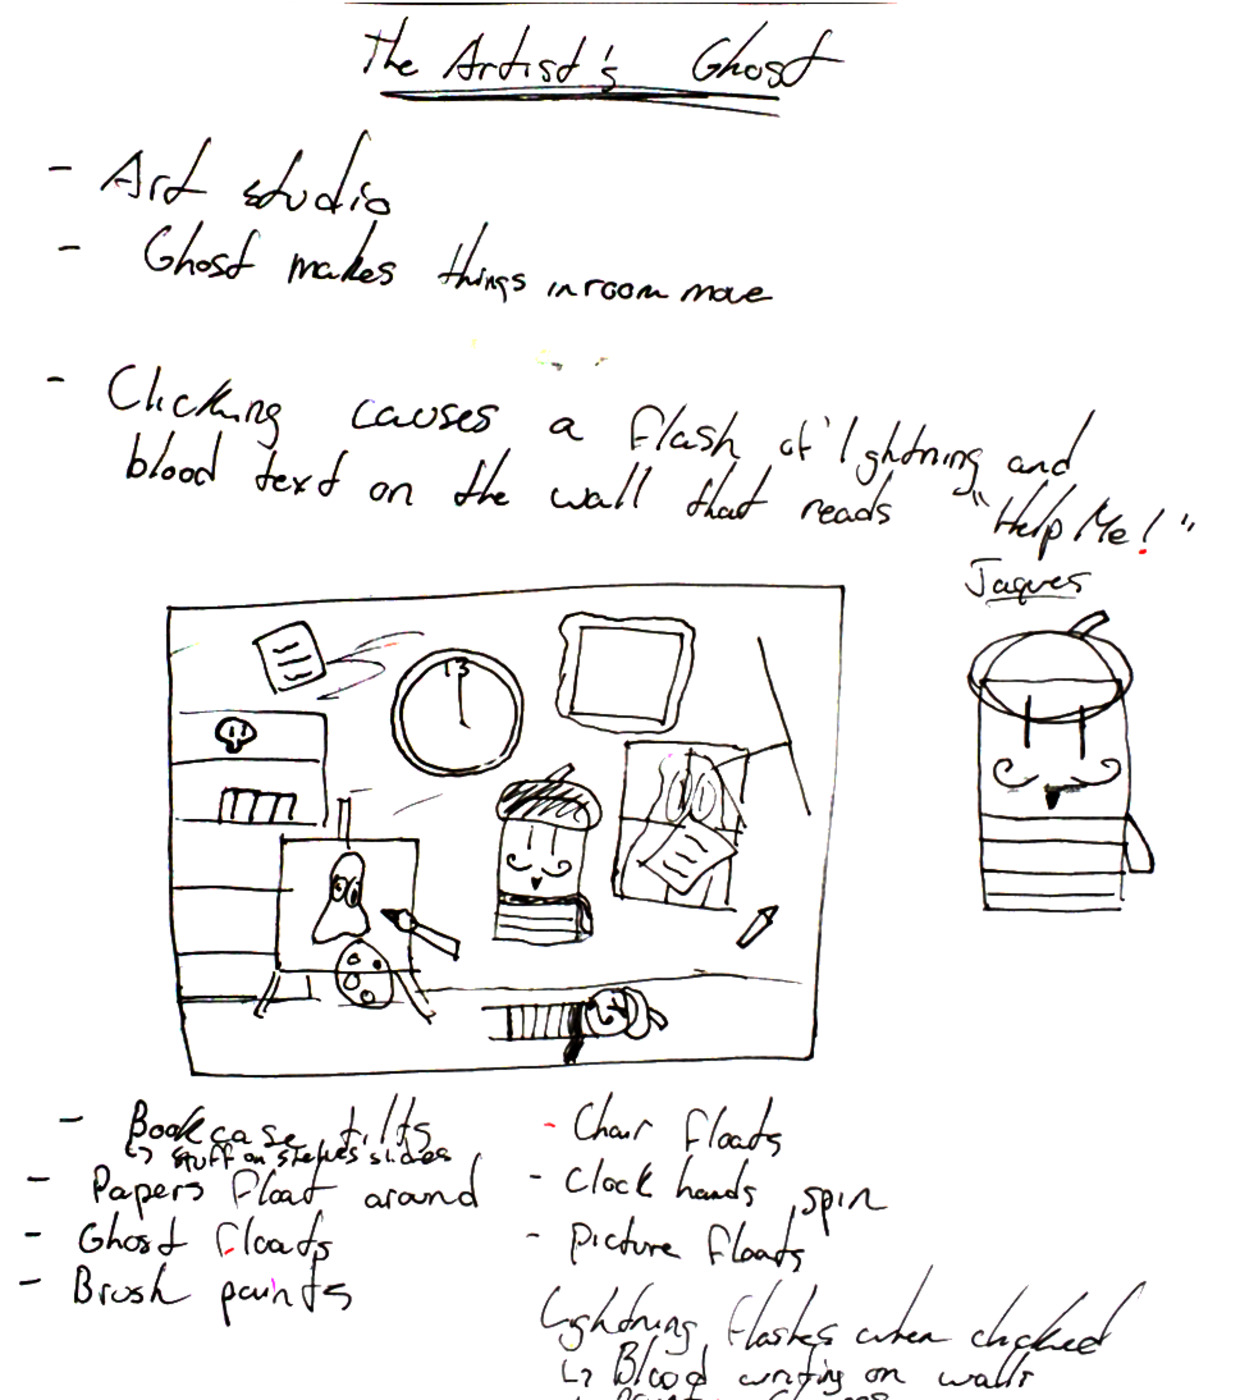 The Artist's Ghost
- Art studio
- Ghost makes things in room move
- Clicking causes a flash of lightning and
blood text on the wall that reads "Help Me!"
Jaques
13
- Bookcase tilts
↳ stuff on shelves slides
- Papers float around
- Ghost floats
- Brush paints
- Chair floats
- Clock hands spin
- Picture floats
Lightning flashes when clicked
↳ Blood writing on walls